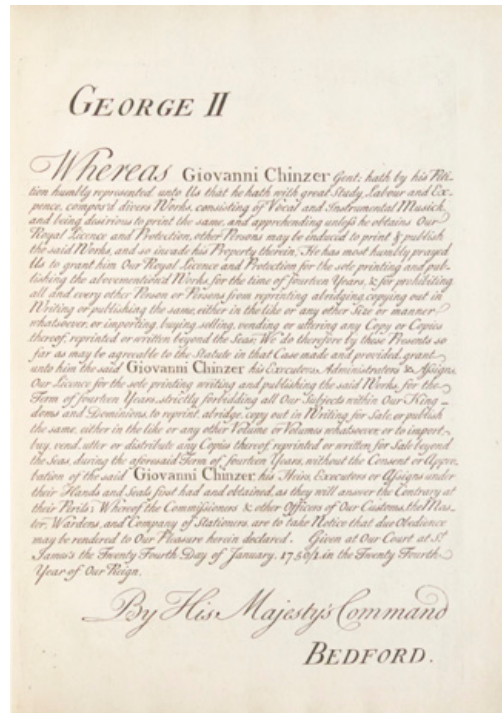 GEORGE II
Whereas Giovanni Chinzer Gent: hath by his Peti-
tion humbly represented unto Us that he hath with great Study Labour and Ex-
pence, compos'd divers Works, consisting of Vocal and Instrumental Musick,
and being disirious to print the same, and apprehending unleſs he obtains Our
Royal Licence and Protection, other Persons may be induced to print & publish
the said Works, and so invade his Property therein; He has most humbly prayed
Us to grant him Our Royal Licence and Protection for the sole printing and pub-
lishing the abovementioned Works, for the time of fourteen Years, & for prohibiting
all and every other Person or Persons from reprinting abridging, copying out in
Writing or publishing the same, either in the like or any other Size or manner
whatsoever, or importing, buying, selling, vending or uttering any Copy or Copies
thereof, reprinted or written beyond the Seas; We do therefore by these Presents so
far as may be agreeable to the Statute in that Case made and provided, grant
unto him the said Giovanni Chinzer his Executors, Administrators & Aſsigns,
Our Licence for the sole printing writing and publishing the said Works, for the
Term of fourteen Years, strictly forbidding all Our Subjects within Our King-
doms and Dominions, to reprint, abridge, copy out in Writing for Sale, or publish
the same, either in the like or any other Volume or Volumes whatsoever, or to import,
buy, vend, utter or distribute any Copies thereof reprinted or written for Sale beyond
the Seas, during the aforesaid Term of fourteen Years, without the Consent or Appro-
bation of the said Giovanni Chinzer, his Heirs, Executors or Aſsigns under
their Hands and Seals first had and obtained, as they will answer the Contrary at
their Perils; Whereof the Commiſsioners & other Officers of Our Customs, the Mas-
ter, Wardens, and Company of Stationers, are to take Notice that due Obedience
may be rendered to Our Pleasure herein declared. Given at Our Court at St
James's the Twenty Fourth Day of January, 1750/1. in the Twenty Fourth
Year of Our Reign.
By His Majesty's Command
BEDFORD.